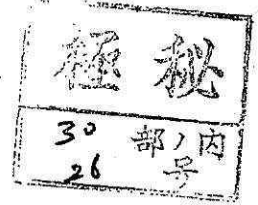 極秘
30部ノ内
26号